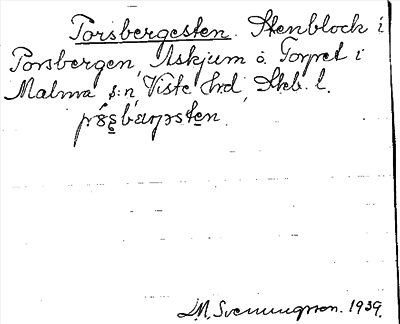 Porsbergesten. Stenblock i
Porsbergen, Askjum o. Torpet i
Malma s:n, Viste hrd, Skb. l.
pǒs̱bærjəste̱n.
D.M. Svenningsson. 1939.